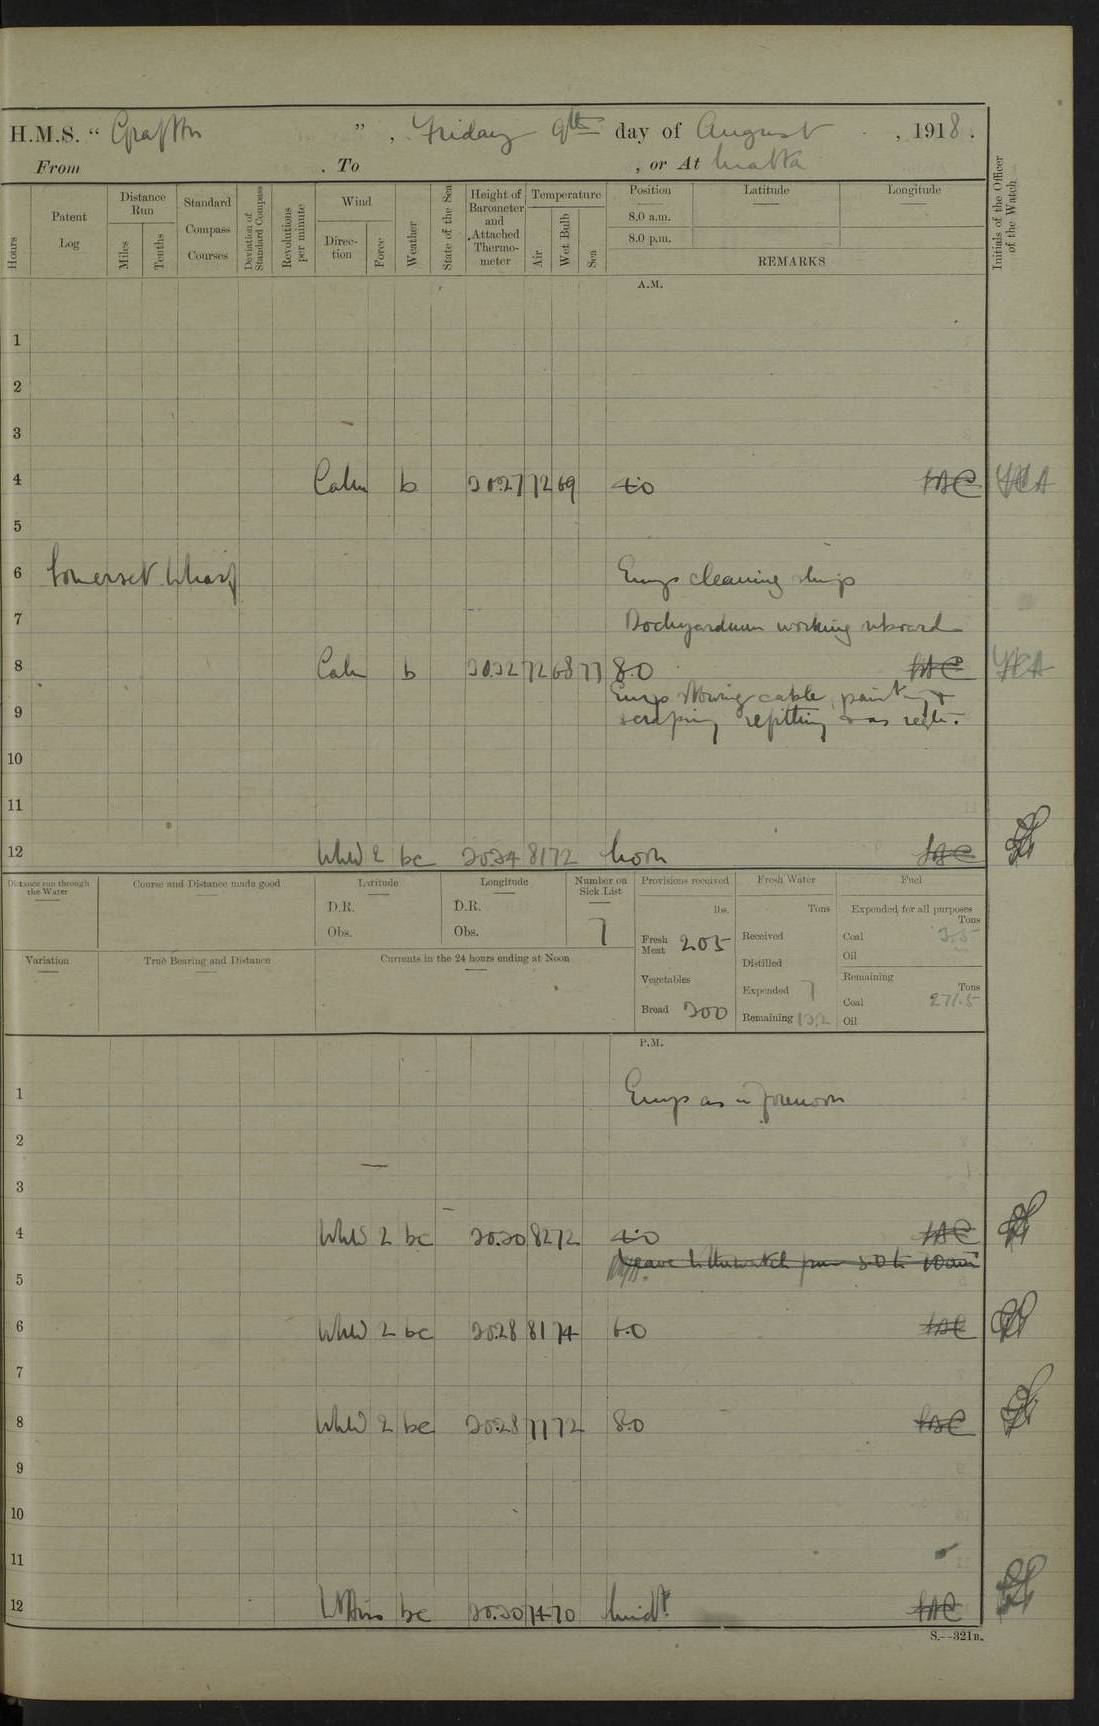 H.M.S. " Grafton ", Friday 9th day of August, 1918.
From . To , or At Malta
Hours
Patent Log
Distance Run
Miles
Tenths
Standard Compass Courses
Deviation of Standard Compass
Revolutions per minute
Wind
Direction
Force
Weather
State of the Sea
Height of Barometer and Attached Thermometer
Temperature
Air
Wet Bulb
Sea
Position
Latitude
Longitude
8.0 a.m.
8.0 p.m.
REMARKS
Initials of the Officer of the Watch
A.M.
1
2
3
4 Calm b 30.27 72 69 4.0
5
6 Somerset Wharf Emp cleaning ship
7 Dockyardmen working onboard
8 Calm b 30.32 72 68 77 8.0
Emp stowing cable, painting &
9 scraping refitting & as reqte.
10
11
12 2 bc 30.34 81 72 Noon
Distance run through the Water
Course and Distance made good
Latitude
D.R.
Obs.
Longitude
D.R.
Obs.
Number on Sick List
7
Provisions received
lbs.
Fresh Meat 205
Vegetables
Bread 200
Fresh Water
Tons
Received
Distilled
Expended 7
Remaining 132
Fuel
Expended for all purposes
Tons
Coal 3.5
Oil
Remaining
Tons
Coal 271.5
Oil
Variation
True Bearing and Distance
Currents in the 24 hours ending at Noon
P.M.
1 Emp as in forenoon
2
3
4 2 bc 30.30 82 72 4.0
Leave to the watch from 5.0 to
5
6 2 bc 30.28 81 74 6.0
7
8 2 bc 30.28 77 72 8.0
9
10
11
12 bc 30.30 74 70 Midt.
S.—321B.